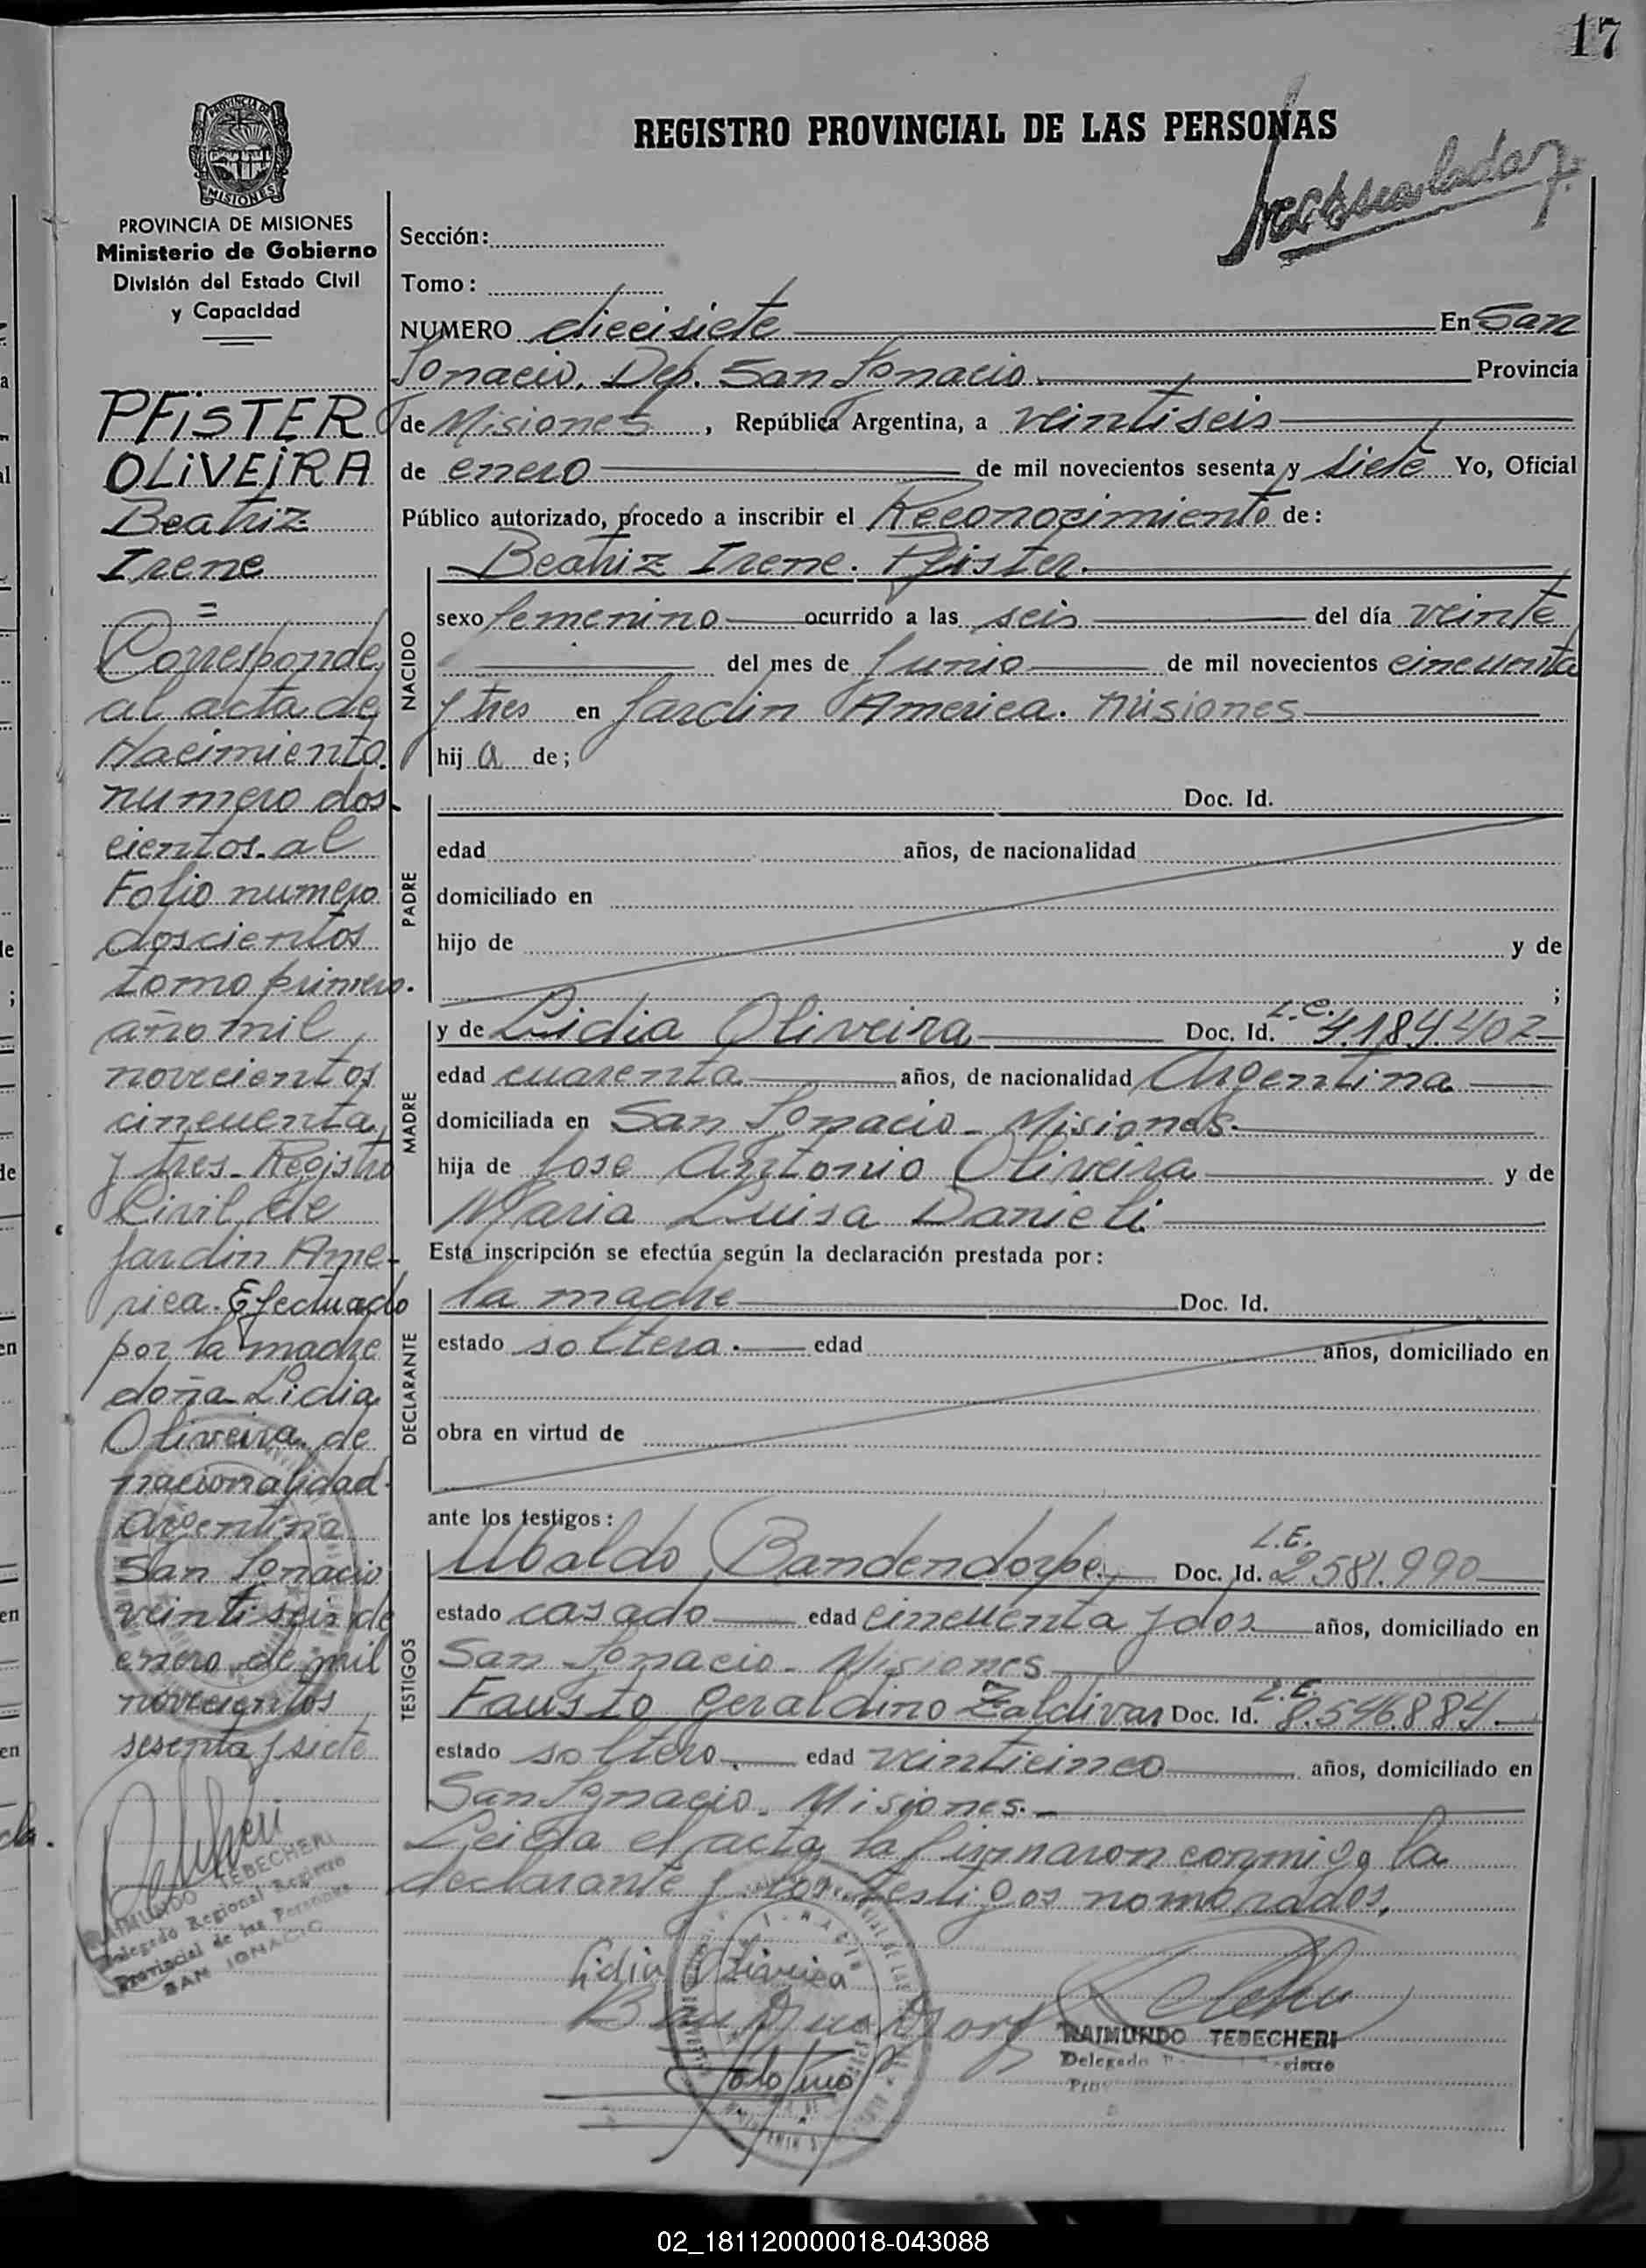 17
REGISTRO PROVINCIAL DE LAS PERSONAS
PROVINCIA DE
MISIONES
PROVINCIA DE MISIONES
Ministerio de Gobierno
División del Estado Civil
y Capacidad
PFiSTER
OLiVEiRA
Beatriz
Irene
=
Corresponde
al acta de
Nacimiento.
numero dos-
cientos. al
Folio numero
doscientos
tomo primero.
año mil
novecientos
cincuenta
y tres - Registro
Civil de
Jardin Ame-
rica. Efectuado
por la madre
doña Lidia
Oliveira. de
nacionalidad
argentina
San Ignacio
veintiseis de
enero de mil
novecientos
sesenta y siete
RAIMUNDO TEBECHERI
Delegado Regional Registro
Provincial de las Personas
SAN IGNACIO
Sección:
Tomo:
NUMERO diecisiete En San
Ignacio. Dep. San Ignacio Provincia
de Misiones, República Argentina, a veintiseis
de enero de mil novecientos sesenta y siete Yo, Oficial
Público autorizado, procedo a inscribir el Reconocimiento de:
NACIDO
Beatriz Irene. Pfister.
sexo femenino ocurrido a las seis del día veinte
del mes de Junio de mil novecientos cincuenta
y tres en Jardin America. Misiones
hij a de;
PADRE
Doc. Id.
edad años, de nacionalidad
domiciliado en
hijo de y de
;
MADRE
y de Lidia Oliveira Doc. Id. L.C. 4.184.402
edad cuarenta años, de nacionalidad Argentina
domiciliada en San Ignacio - Misiones.
hija de Jose Antonio Oliveira y de
Maria Luisa Danieli
Esta inscripción se efectúa según la declaración prestada por:
DECLARANTE
la madre Doc. Id.
estado soltera. edad años, domiciliado en
obra en virtud de
ante los testigos:
TESTIGOS
Ubaldo Bandendorpe. Doc. Id. L.E. 2581.990
estado casado edad cincuenta y dos años, domiciliado en
San Ignacio - Misiones
Fausto Geraldino Zaldivar Doc. Id. L.E. 8.546.884.
estado soltero. edad veinticinco años, domiciliado en
San Ignacio. Misiones.-
Leida el acta, la firmaron conmigo la
declarante y los testigos nombrados.
Lidia Oliveira
RAIMUNDO TEBECHERI
Delegado
02_181120000018-043088